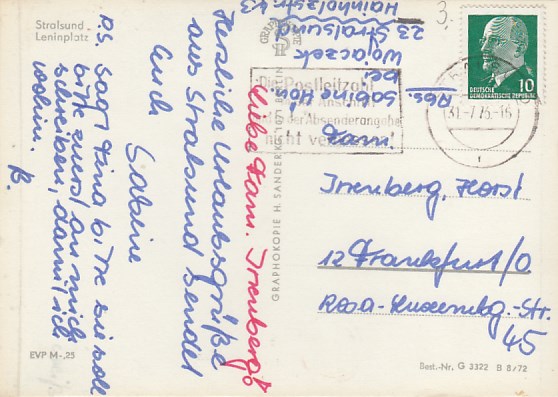 Stralsund
Leninplatz
Liebe Fam. Irrenberg!
Herzliche Urlaubsgrüße
aus Stralsund sendet
Euch
Sabine
PS. Sagt Tina bitte sie soll
bitte zuerst an mich
schreiben, damit ich
wohin.
B.
EVP M-,25
GRAPHOKOPIE H. SANDER KG 1071 BERLIN
Abs.
Sabine
Wojaczek
23 Stralsund
Hainholzstr. 43
3.
Die Postleitzahl
in der Absenderangabe
nicht vergessen!
DEUTSCHE
DEMOKRATISCHE REPUBLIK
10
31.-7.75-16
Fam.
Irrenberg, Horst
12 Frankfurt/O
Rosa-Luxembg.-Str.
45
Best.-Nr. G 3322 B 8/72